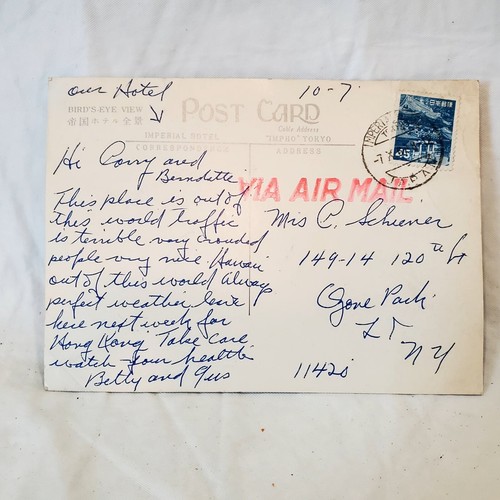 our Hotel
10-7
BIRD'S-EYE VIEW
帝国ホテル全景
POST CARD
IMPERIAL HOTEL
Cable Address
"IMPHO" TOKYO
CORRESPONDENCE
ADDRESS
日本郵便
35
VIA AIR MAIL
Hi Corry and
Bernadette
This place is out of
this world traffic
is terrible very crowded
people very nice. Hawaii
out of this world always
perfect weather leave
here next week for
Hong Kong Take care
watch your health
Betty and Gus
Mrs C. Schiener
149-14 120th
Ozone Park
L I
N Y
11420